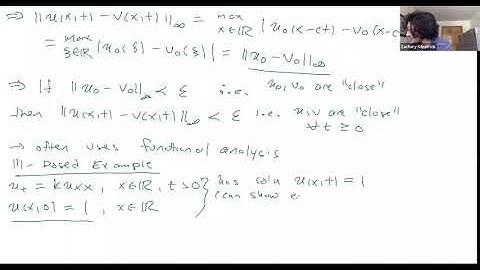 ⇒ ||u(x,t) - v(x,t)||∞ = max x∈ℝ |u₀(x-ct) - v₀(x-c
= max ξ∈ℝ |u₀(ξ) - v₀(ξ)| = ||u₀ - v₀||∞
⇒ If ||u₀ - v₀||∞ < ε i.e. u₀, v₀ are "close"
then ||u(x,t) - v(x,t)||∞ < ε i.e. u, v are "close"
∀t ≥ 0
→ often uses functional analysis
Ill-Posed Example
uₜ = k uₓₓ, x∈ℝ, t>0 } has soln u(x,t) = 1
u(x,0) = 1, x∈ℝ (can show e